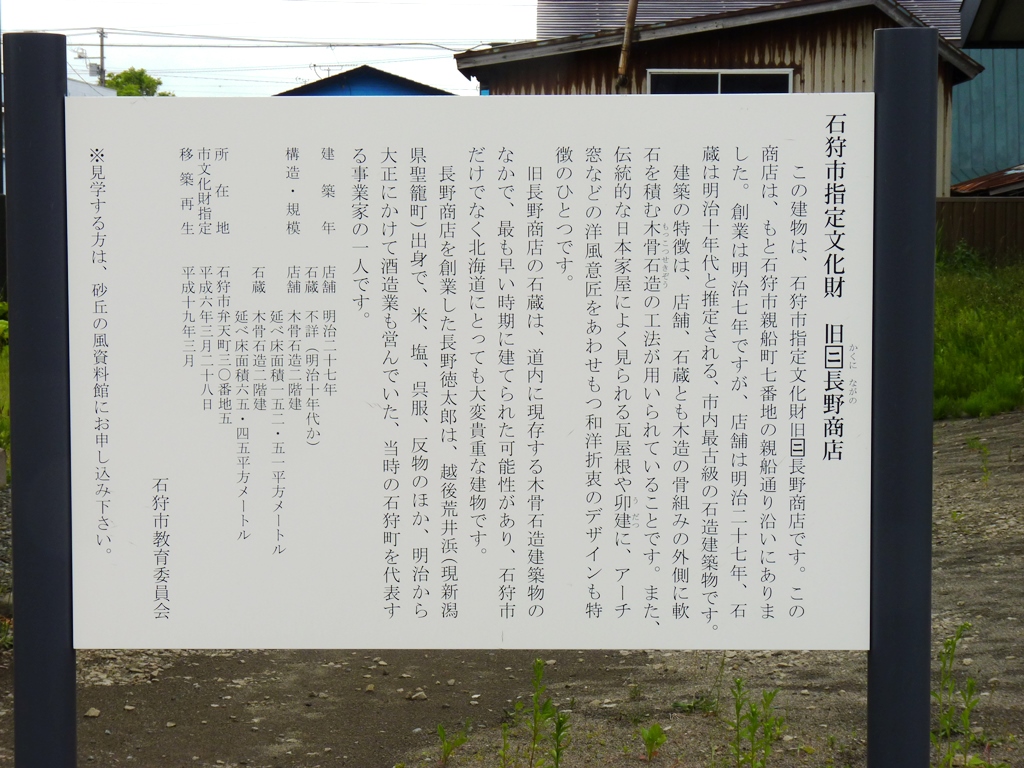 石狩市指定文化財 旧🈔長野商店
かくに ながの
この建物は、石狩市指定文化財旧🈔長野商店です。この
商店は、もと石狩市親船町七番地の親船通り沿いにありま
した。創業は明治七年ですが、店舗は明治二十七年、石
蔵は明治十年代と推定される、市内最古級の石造建築物です。
建築の特徴は、店舗、石蔵とも木造の骨組みの外側に軟
石を積む木骨石造の工法が用いられていることです。また、
もっこつせきぞう
伝統的な日本家屋によく見られる瓦屋根や卯建に、アーチ
うだつ
窓などの洋風意匠をあわせもつ和洋折衷のデザインも特
徴のひとつです。
旧長野商店の石蔵は、道内に現存する木骨石造建築物の
なかで、最も早い時期に建てられた可能性があり、石狩市
だけでなく北海道にとっても大変貴重な建物です。
長野商店を創業した長野徳太郎は、越後荒井浜(現新潟
県聖籠町)出身で、米、塩、呉服、反物のほか、明治から
大正にかけて酒造業も営んでいた、当時の石狩町を代表す
る事業家の一人です。
建築年 店舗 明治二十七年
石蔵 不詳(明治十年代か)
構造・規模 店舗 木骨石造二階建
延べ床面積一五二・五一平方メートル
石蔵 木骨石造二階建
延べ床面積六五・四五平方メートル
所在地 石狩市弁天町三〇番地五
市文化財指定 平成六年三月二十八日
移築再生 平成十九年三月
石狩市教育委員会
※見学する方は、砂丘の風資料館にお申し込み下さい。